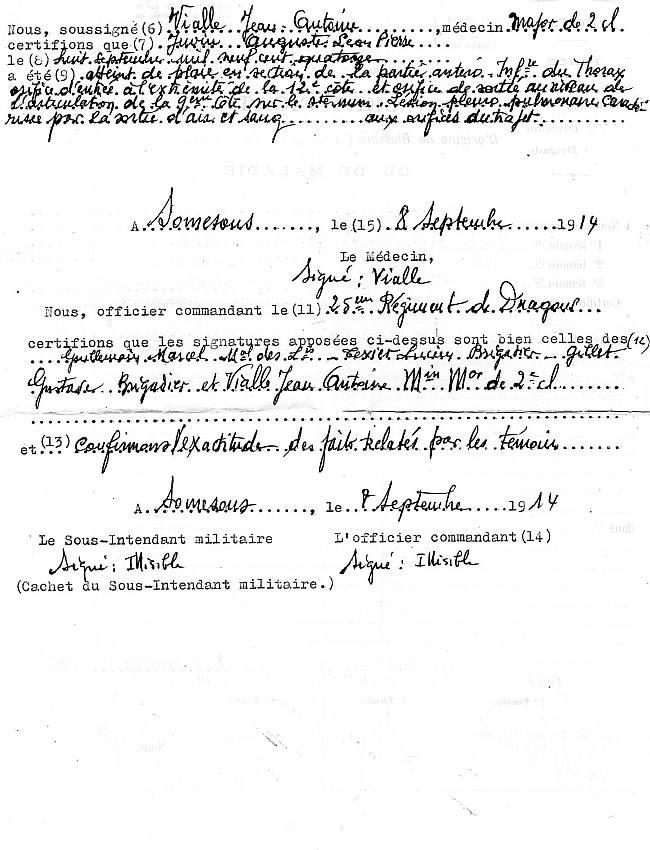 Nous, soussigné (6) Vialle Jean-Antoine, médecin Major de 2 cl.
certifions que (7) Auguste Léon Pierre
le (8) huit septembre mil neuf cent quatorze
a été (9) atteint de plaie en section de la partie antéro. Infre du Thorax
orifice d'entrée à l'extrémité de la 12e côte et orifice de sortie au niveau de
l'articulation de la côte sur le sternum Lésion pleuro pulmonaire caracté-
risée par la sortie d'air et sang aux orifices du trajet
A Somesous, le (15) 8 Septembre 1914
Le Médecin,
Signé : Vialle
Nous, officier commandant le (11) Régiment de Dragons
certifions que les signatures apposées ci-dessus sont bien celles des (12)
Marcel Mal des Lis - Texier Lucien Brigadier - Gillet
Gustave Brigadier et Vialle Jean Antoine Min Mor de 2e cl
et (13) confirmons l'exactitude des faits relatés par les témoins
A Somesous, le 8 Septembre 1914
Le Sous-Intendant militaire L'officier commandant (14)
Signé : Illisible Signé : Illisible
(Cachet du Sous-Intendant militaire.)